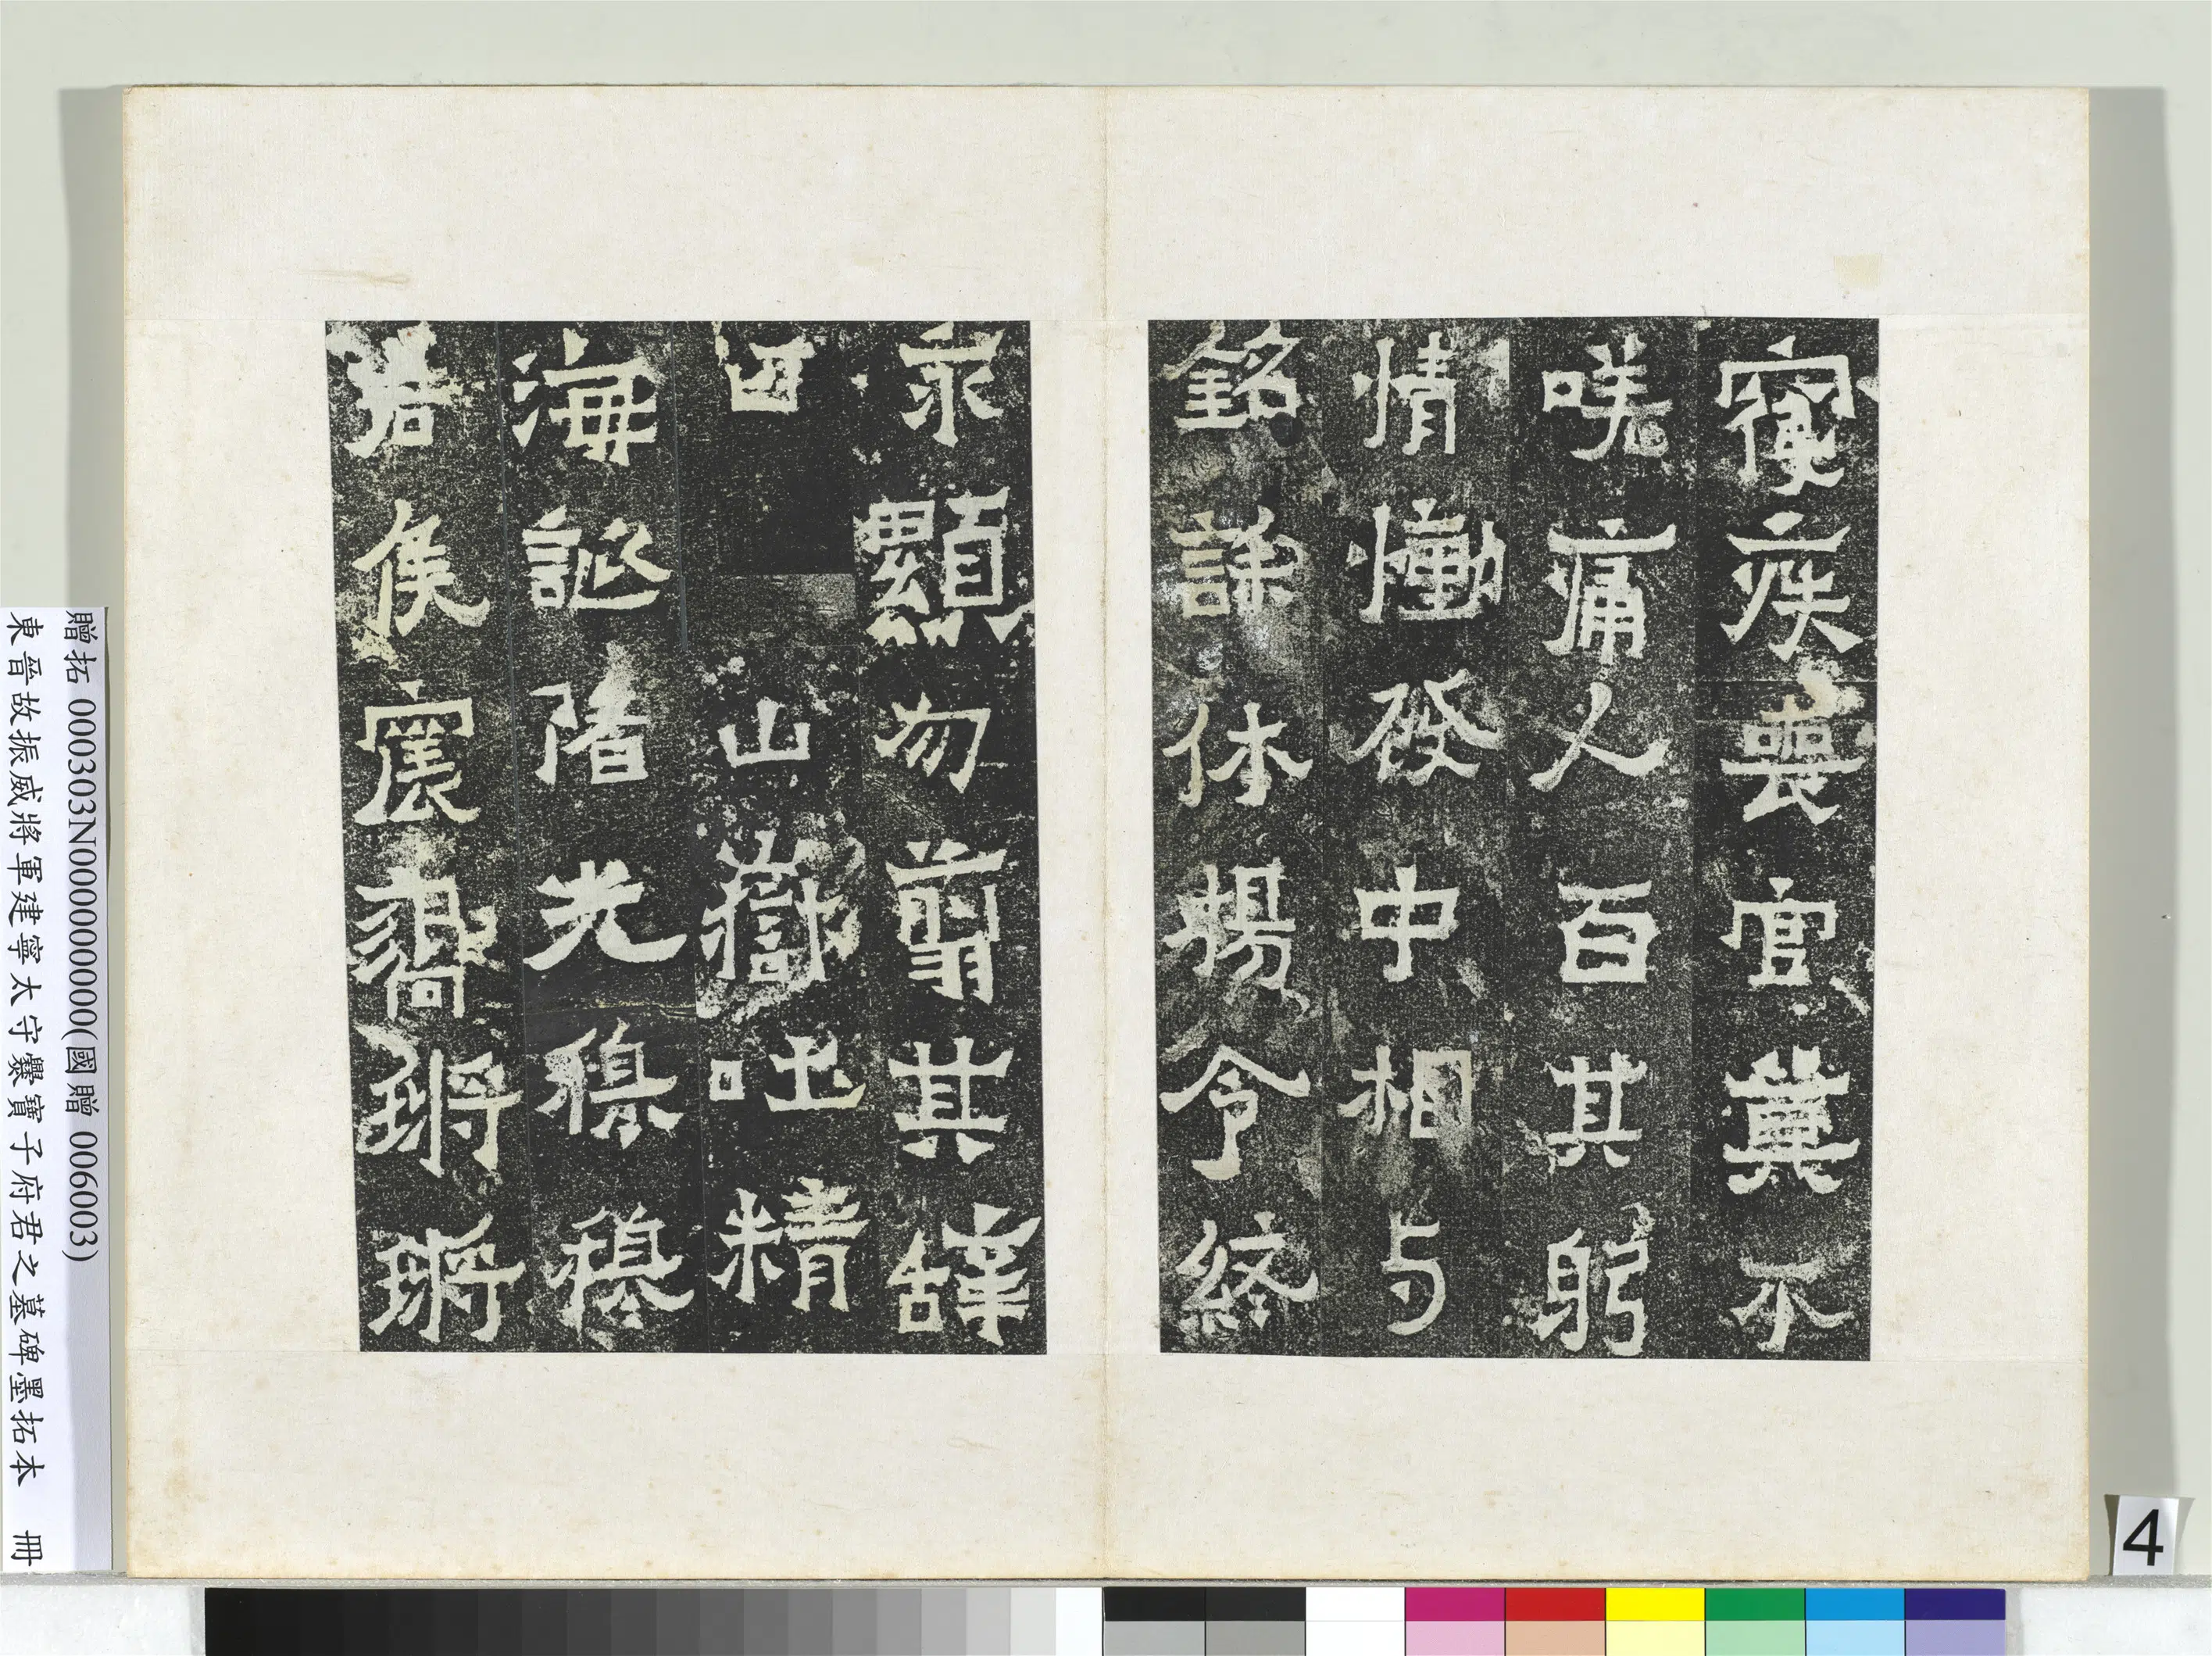 寢疾喪官莫不
嗟痛人百其躬
情慟發中相与
銘誄休揚令終
永顯勿翦其辭
曰 山嶽吐精
海誕陼光穆穆
君侯震響鏘鏘
贈拓 000303N000000000(國贈 006003)
東晉故振威將軍建寧太守爨寶子府君之墓碑墨拓本 冊
4